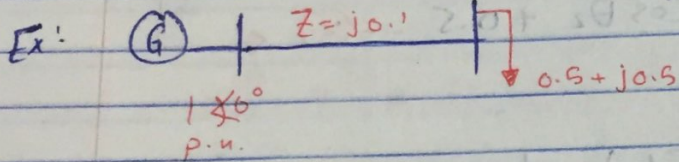 Ex: G Z=j0.1
0.5+j0.5
1∠0°
p.u.